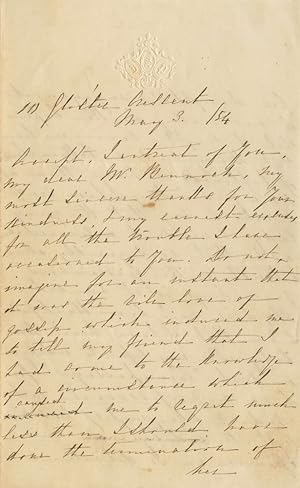 10 Glo'ster Crescent
May 3. /54
Accept, I entreat of You,
my dear Mr. , my
most sincere thanks for Your
kindness, & my earnest
for all the trouble I have
occasioned to You. Do not
imagine for an instant that
it was the vile love of
gossip which induced me
to tell my friend that I
had come to the knowledge
of a circumstance which
caused
me to regret much
less than I should have
done the termination of
her